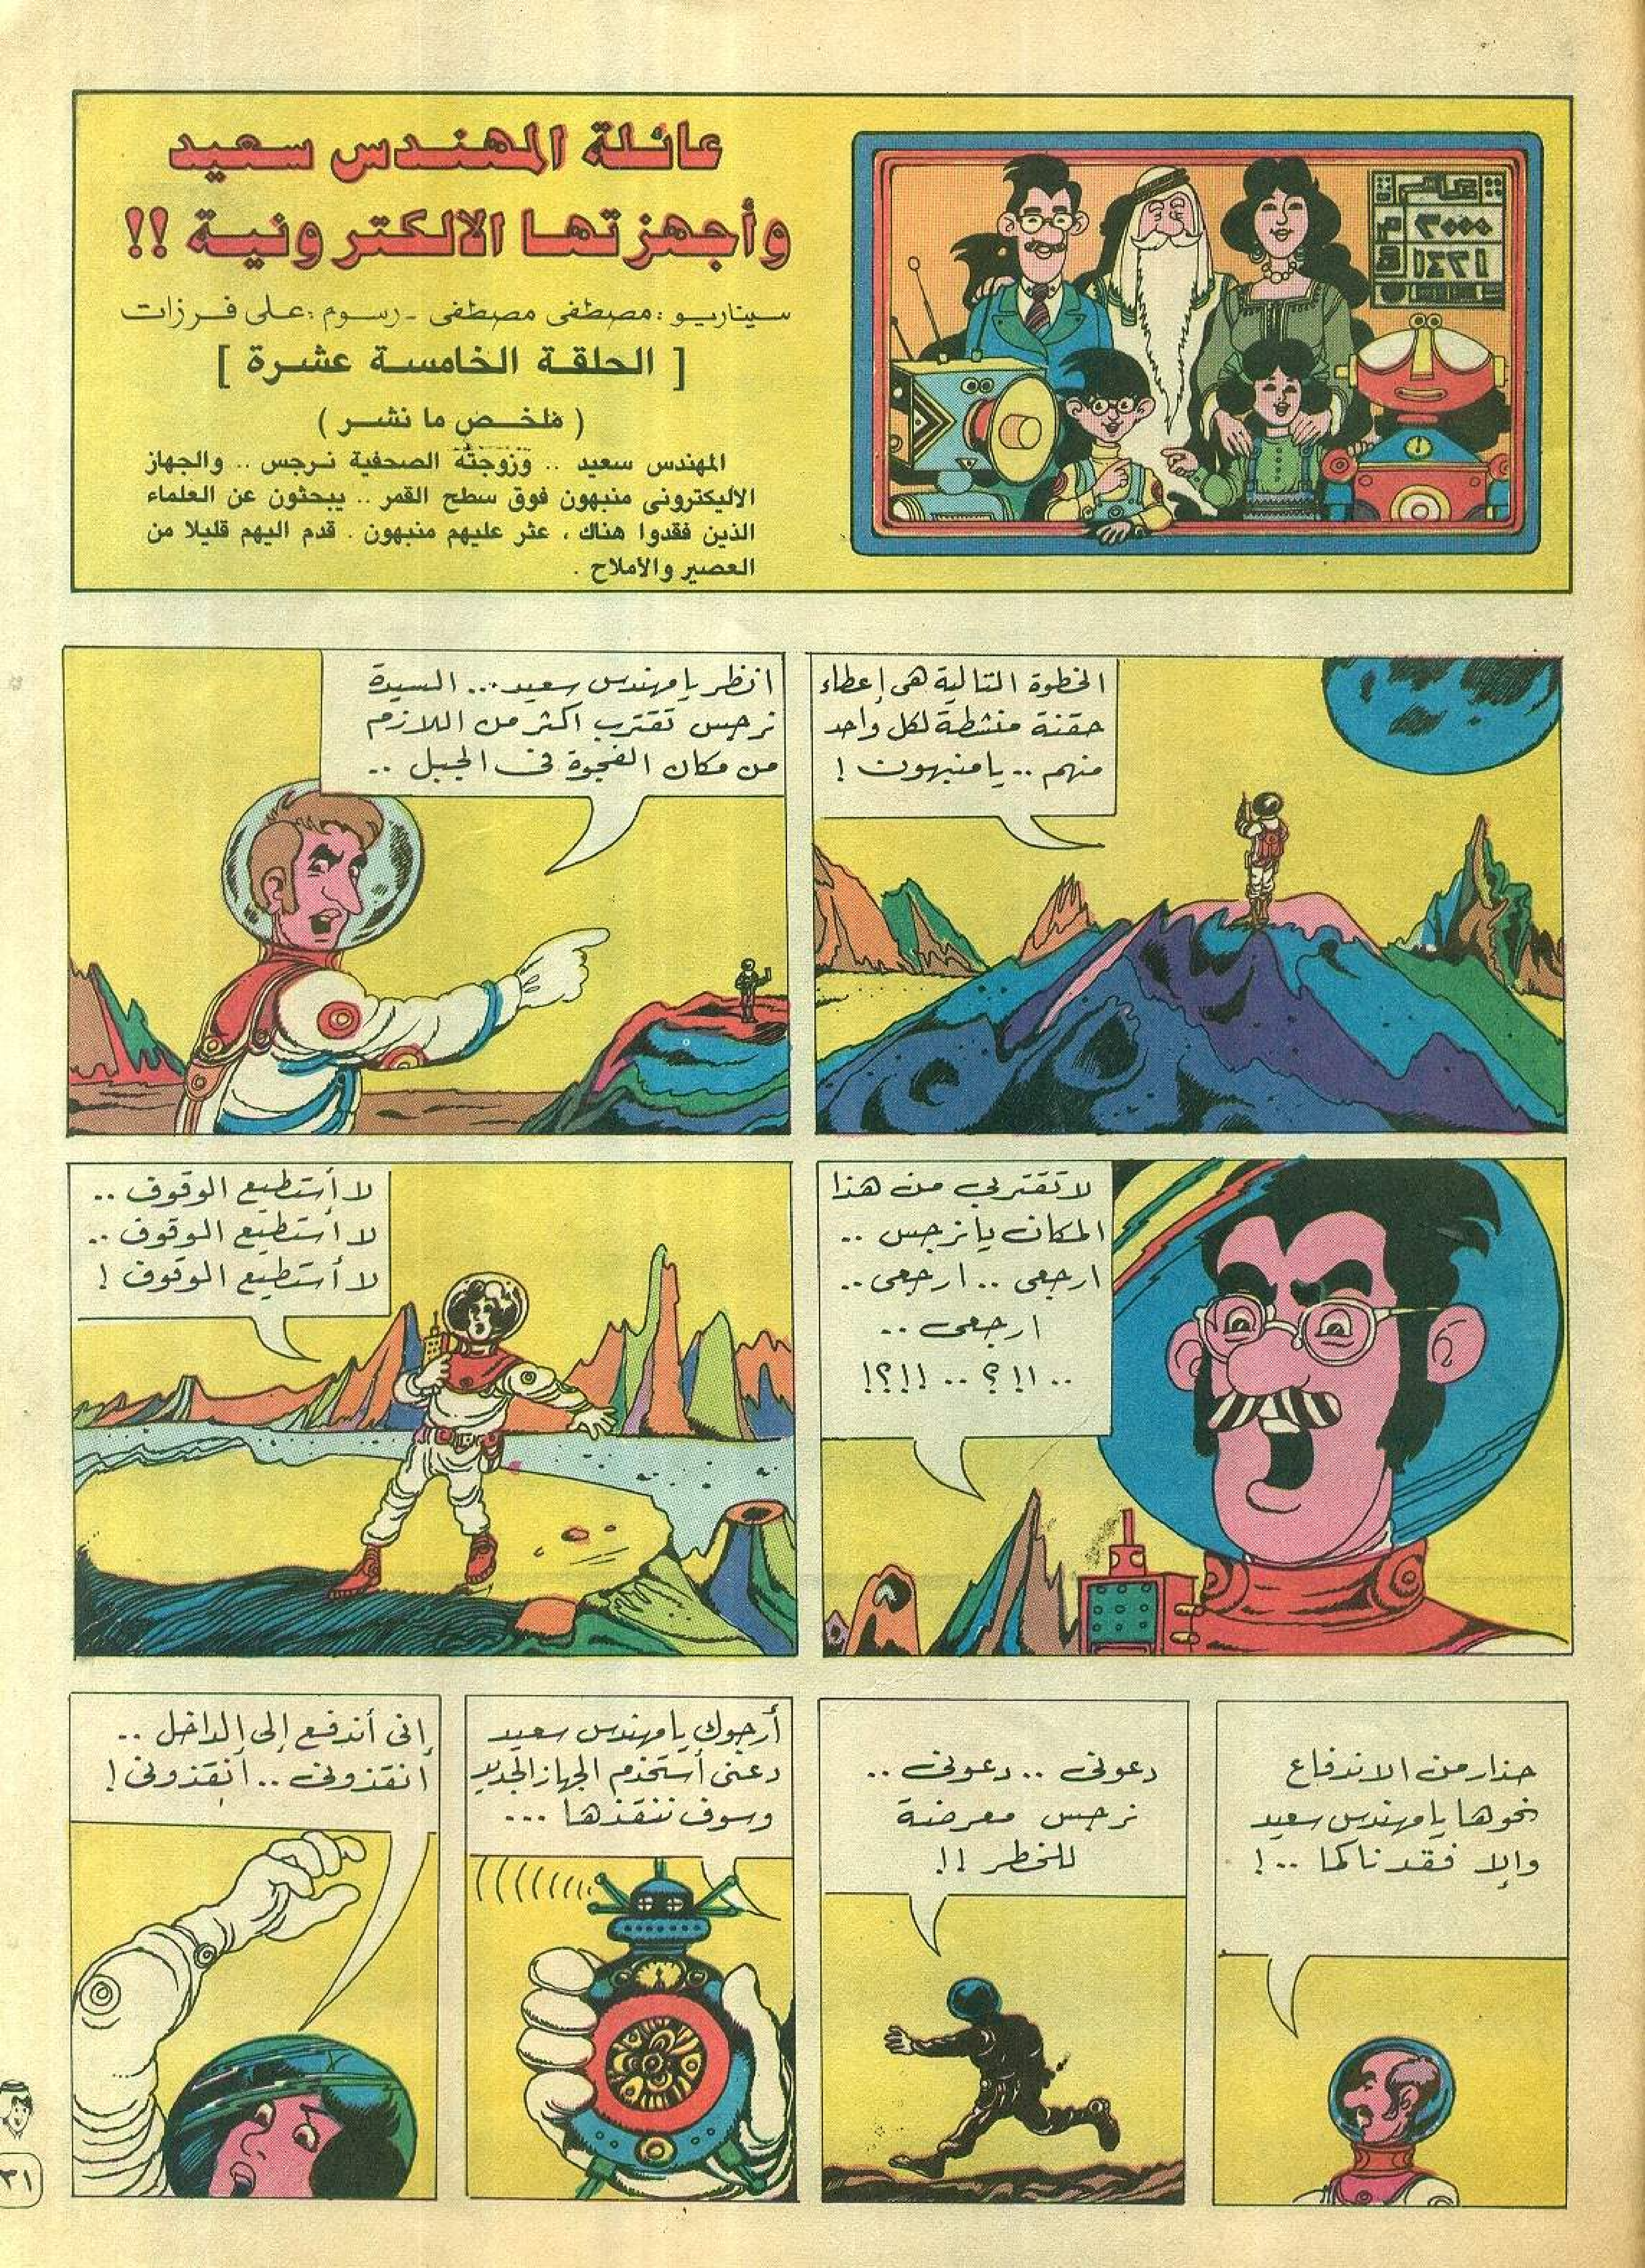 عائلة المهندس سعيد
وأجهزتها الالكترونية !!
سيناريو : مصطفى مصطفى - رسوم : على فرزات
[ الحلقة الخامسة عشرة ]
( ملخص ما نشر )
المهندس سعيد .. وزوجته الصحفية نرجس .. والجهاز
الاليكترونى منبهون فوق سطح القمر .. يبحثون عن العلماء
الذين فقدوا هناك ، عثر عليهم منبهون . قدم اليهم قليلا من
العصير والأملاح .
عام
٢٠٠٠ م
١٤٢١ هـ
الخطوة التالية هى إعطاء
حقنة منشطة لكل واحد
منهم .. يا منبهون !
انظر يا مهندس سعيد ... السيدة
نرجس تقترب اكثر من اللازم
من مكان الفجوة فى الجبل ..
لا تقتربي من هذا
المكان يا نرجس ..
ارجعى .. ارجعى ..
ارجعى ..
.. !!؟ .. !!؟!
لا أستطيع الوقوف ..
لا أستطيع الوقوف ..
لا أستطيع الوقوف !
حذار من الاندفاع
نحوها يا مهندس سعيد
وإلا فقدناكما .. !
دعونى .. دعونى ..
نرجس معرضة
للخطر !!
أرجوك يا مهندس سعيد
دعنى أستخدم الجهاز الجديد
وسوف ننقذها ...
إنى أندفع إلى الداخل ..
انقذونى .. انقذونى !
٣١